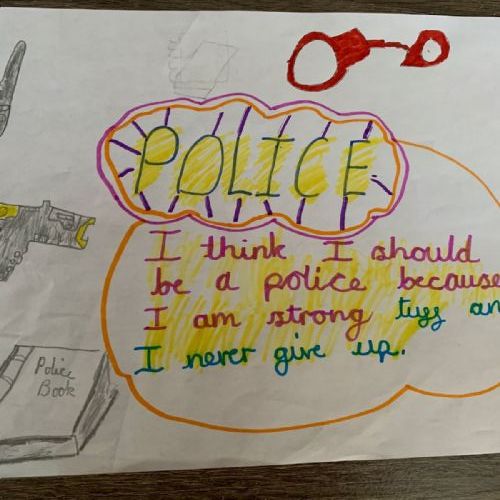 POLICE
I think I should
be a police because
I am strong tuff an
I never give up.
Police
Book